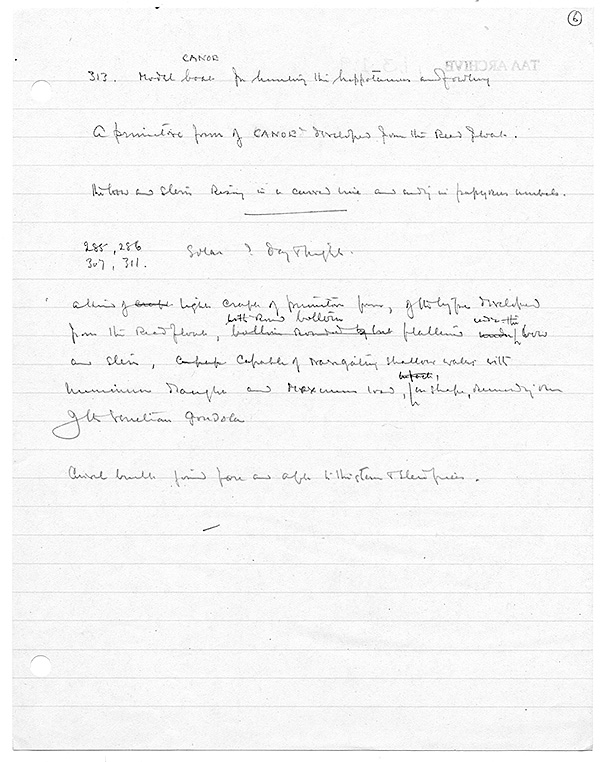 6
TAA ARCHIVE
CANOE
313. Model boat for hunting the hippopotamus and fowling
A primitive form of CANOE developed from the Reed floats.
The bow and stern Rising in a curved line and ending in papyrus umbels.
285, 286 Solar ? Day & Night.
307, 311.
a kind of craft light craft of primitive form, of the type developed
with Round bottom
from the Reed floats, bottom Rounded but flattened under the bow
and stern, capable of navigating shallow water with
minimum draught and maximum load, in shape, reminding one
of the Venetian Gondola
Carvel built joined fore and aft to the stem & stern pieces.